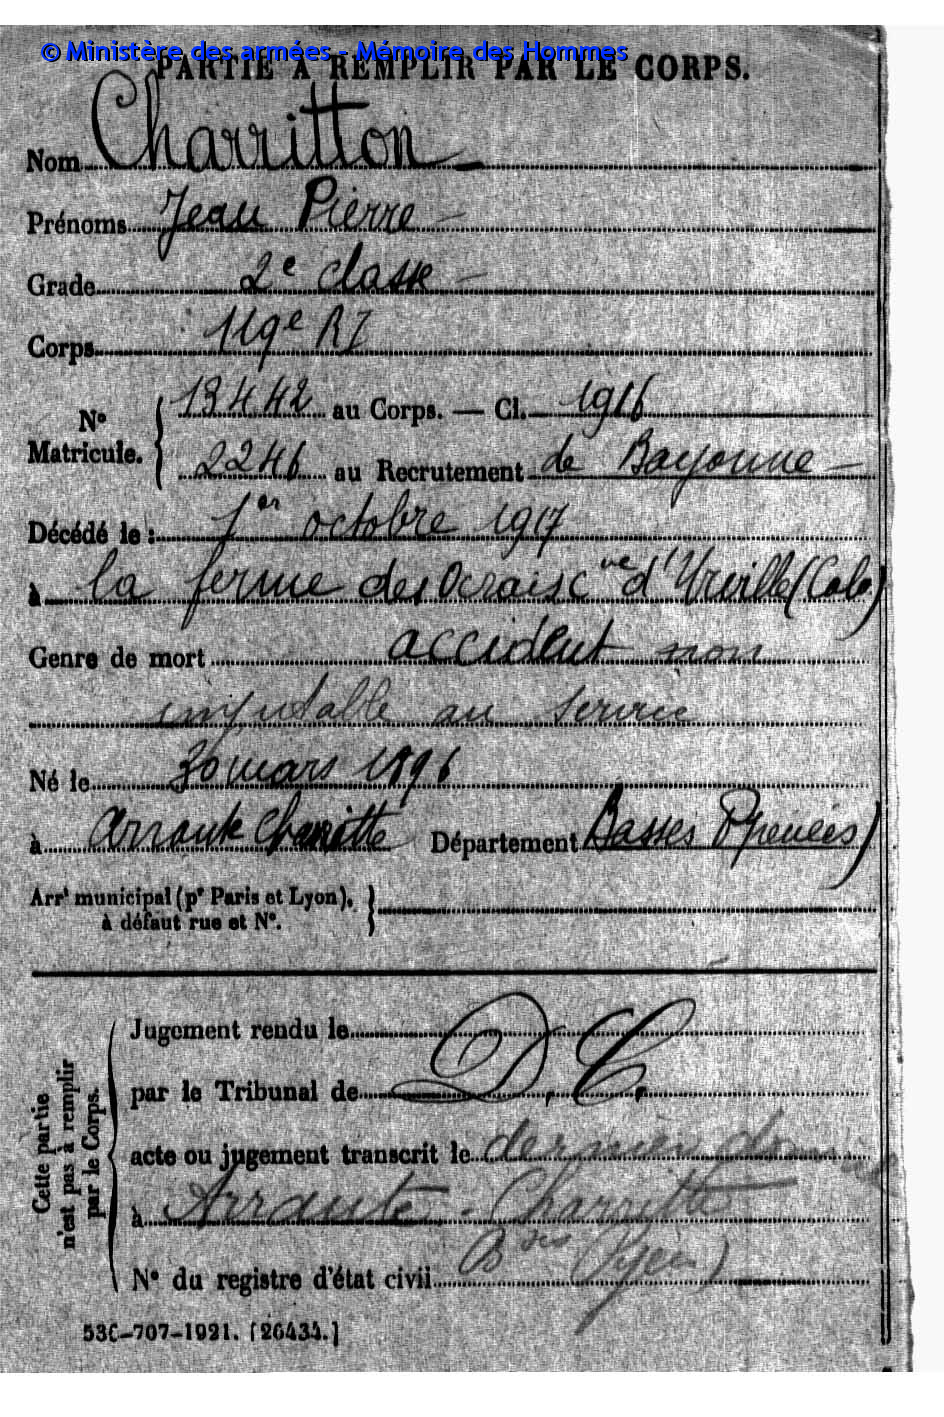 © Ministère des armées - Mémoire des Hommes
PARTIE À REMPLIR PAR LE CORPS.
Nom Charritton
Prénoms Jean Pierre
Grade 2e classe
Corps 119e RI
No Matricule. 13442 au Corps. — Cl. 1916
2246 au Recrutement de Bayonne
Décédé le : 1er octobre 1917
à la ferme des cne d'Urville (Calv)
Genre de mort accident non
imputable au service
Né le 30 mars 1896
à Arraute Charritte Département Basses Pyrénées)
Arrt municipal (pr Paris et Lyon),
à défaut rue et No.
Cette partie n'est pas à remplir par le Corps.
Jugement rendu le
par le Tribunal de D.C.
acte ou jugement transcrit le dernier domicile
à Arraute - Charritte
Bses Pyrén)
No du registre d'état civil
530-707-1921. [26434.]